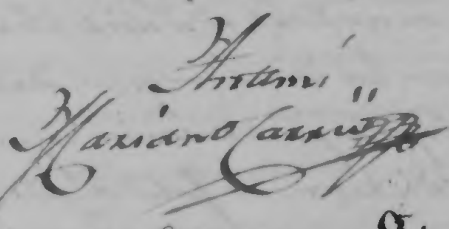 Ante mi
Mariano Carrillo